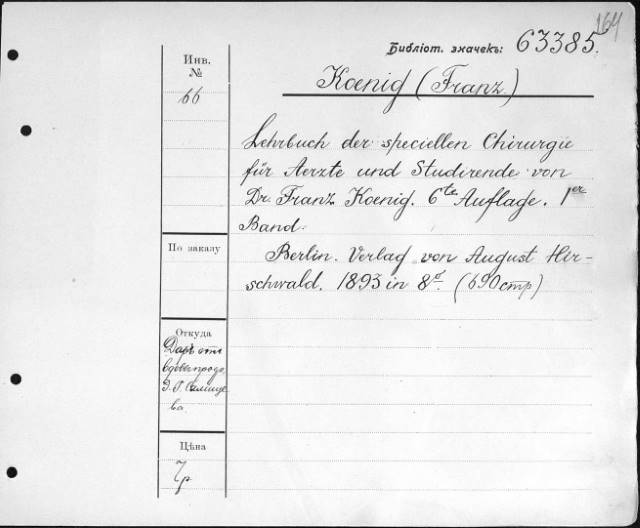 164
Библіот. значекъ: 63385.
Инв.
№
66
Koenig (Franz.)
Lehrbuch der speciellen Chirurgie
für Aerzte und Studirende von
Dr. Franz Koenig. 6te Auflage. 1er
Band.
Berlin. Verlag von August Hir-
schwald. 1893 in 8º. (690 стр)
По заказу
Откуда
Даръ отъ
вдовы проф.
Цѣна
7р